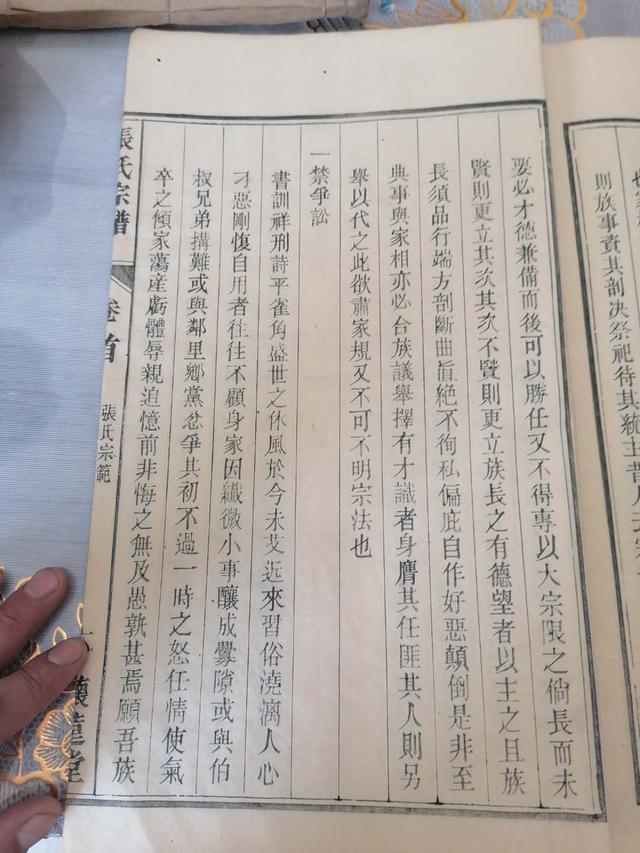 也
則族事資其剖決祭祀待其統主
要必才德兼備而後可以勝任又不得專以大宗限之倘長而未
賢則更立其次其次不賢則更立族長之有德望者以主之且族
長須品行端方剖斷曲直絕不徇私偏庇自作好惡顛倒是非至
典事與家相亦必合族議舉擇有才識者身膺其任匪其人則另
舉以代之此欲肅家規又不可不明宗法也
一禁爭訟
書訓祥刑詩平雀角盛世之休風於今未艾近來習俗澆漓人心
刁惡剛愎自用者往往不顧身家因纖微小事釀成釁隙或與伯
叔兄弟搆難或與鄰里鄉黨忿爭其初不過一時之怒任情使氣
卒之傾家蕩產虧體辱親追憶前非悔之無及愚孰甚焉願吾族
張氏宗譜
卷首
張氏宗範
堂